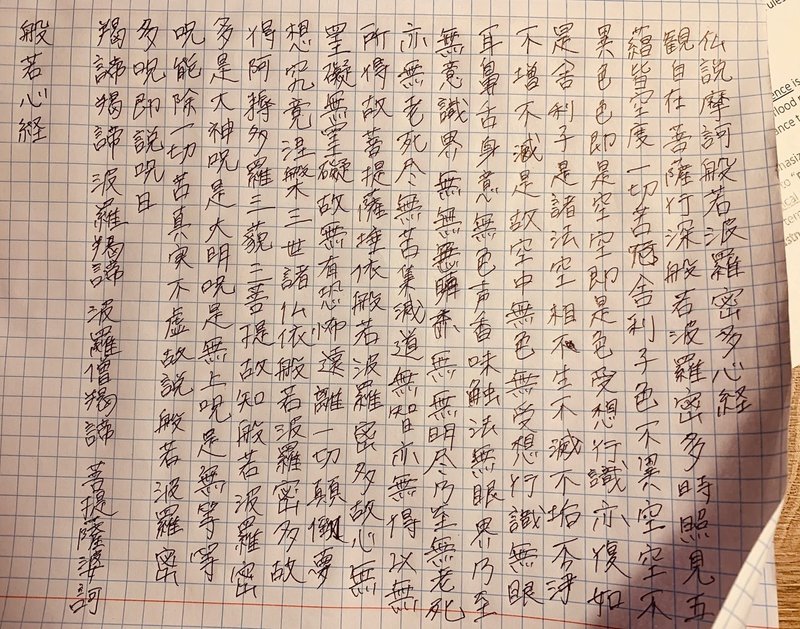 仏説摩訶般若波羅密多心経
観自在菩薩行深般若波羅密多時照見五
蘊皆空度一切苦厄舎利子色不異空空不
異色色即是空空即是色受想行識亦復如
是舎利子是諸法空相不生不滅不垢不浄
不増不減是故空中無色無受想行識無眼
耳鼻舌身意無色声香味触法無眼界乃至
無意識界無無明亦無無明尽乃至無老死
亦無老死尽無苦集滅道無智亦無得以無
所得故菩提薩埵依般若波羅密多故心無
罣礙無罣礙故無有恐怖遠離一切顛倒夢
想究竟涅槃三世諸仏依般若波羅密多故
得阿耨多羅三藐三菩提故知般若波羅密
多是大神呪是大明呪是無上呪是無等等
呪能除一切苦真実不虚故説般若波羅密
多呪即説呪曰
羯諦羯諦 波羅羯諦 波羅僧羯諦 菩提薩婆訶
般若心経